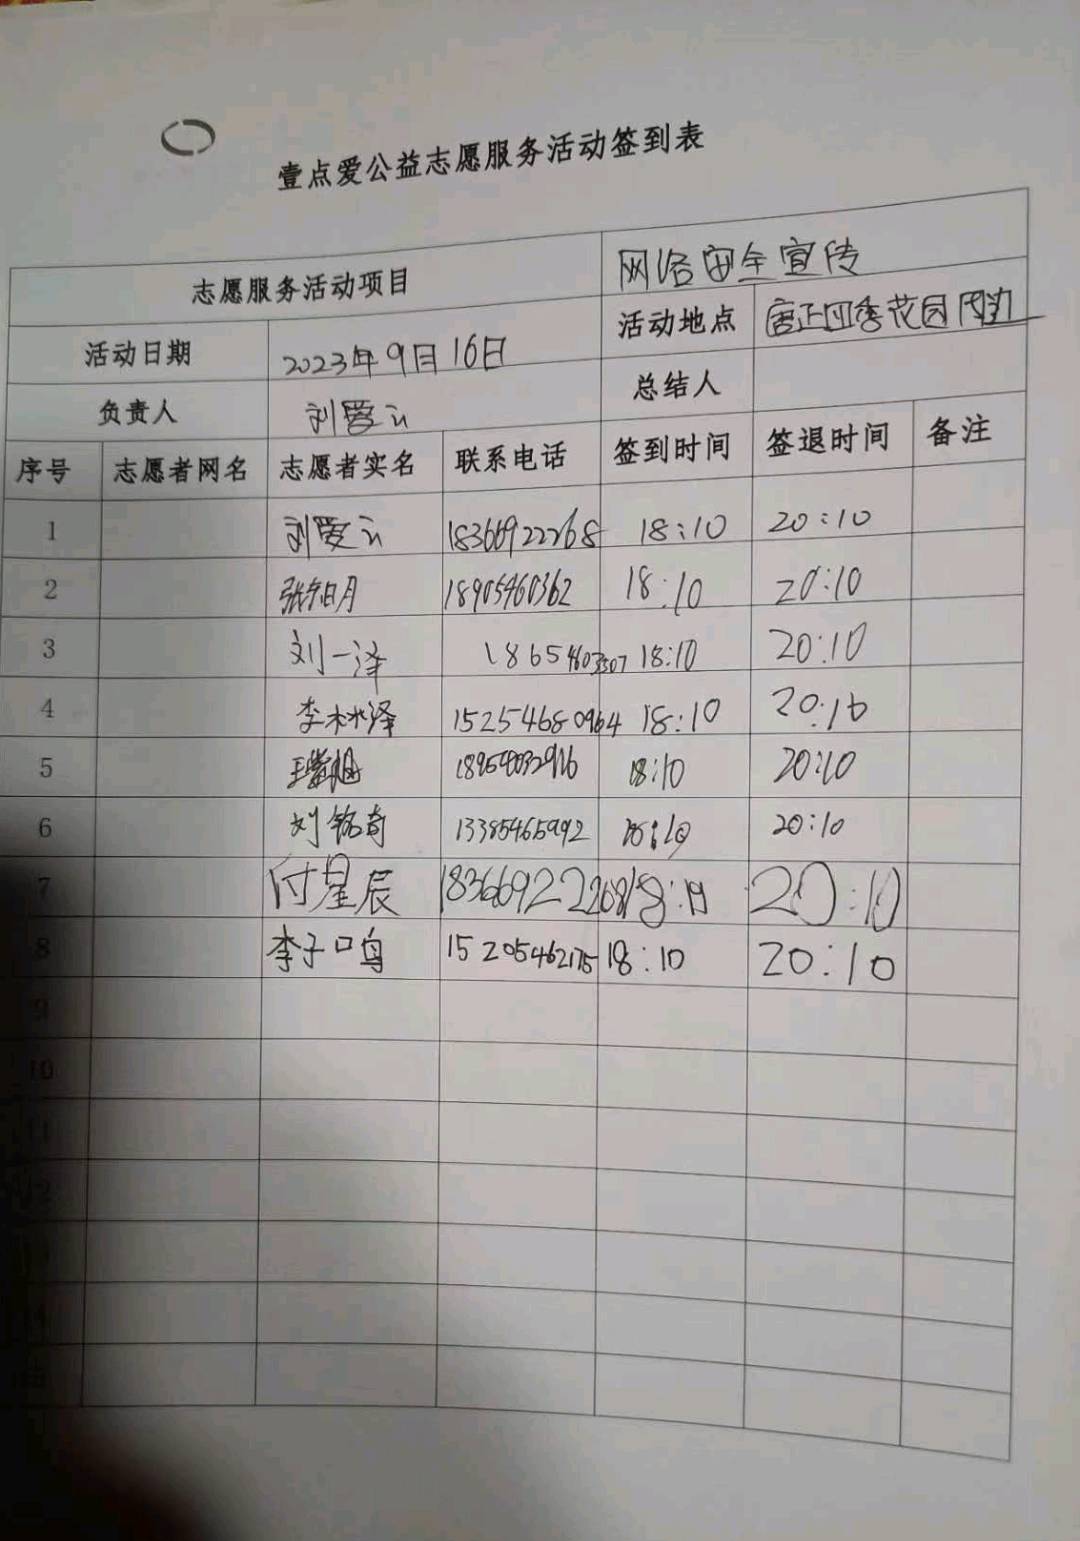 壹点爱公益志愿服务活动签到表
志愿服务活动项目 网络安全宣传
活动日期 2023年9月16日 活动地点 唐正四季花园周边
负责人 刘爱云 总结人
序号 志愿者网名 志愿者实名 联系电话 签到时间 签退时间 备注
1 刘爱云 18366922268 18:10 20:10
2 18905460362 18:10 20:10
3 刘一泽 18654603507 18:10 20:10
4 李林泽 15254680964 18:10 20:10
5 18:10 20:10
6 刘铭奇 13385465992 18:10 20:10
7 付星辰 18366922268 18:10 20:10
8 李子鸣 15205462175 18:10 20:10
9
10
11
12
13
14
15